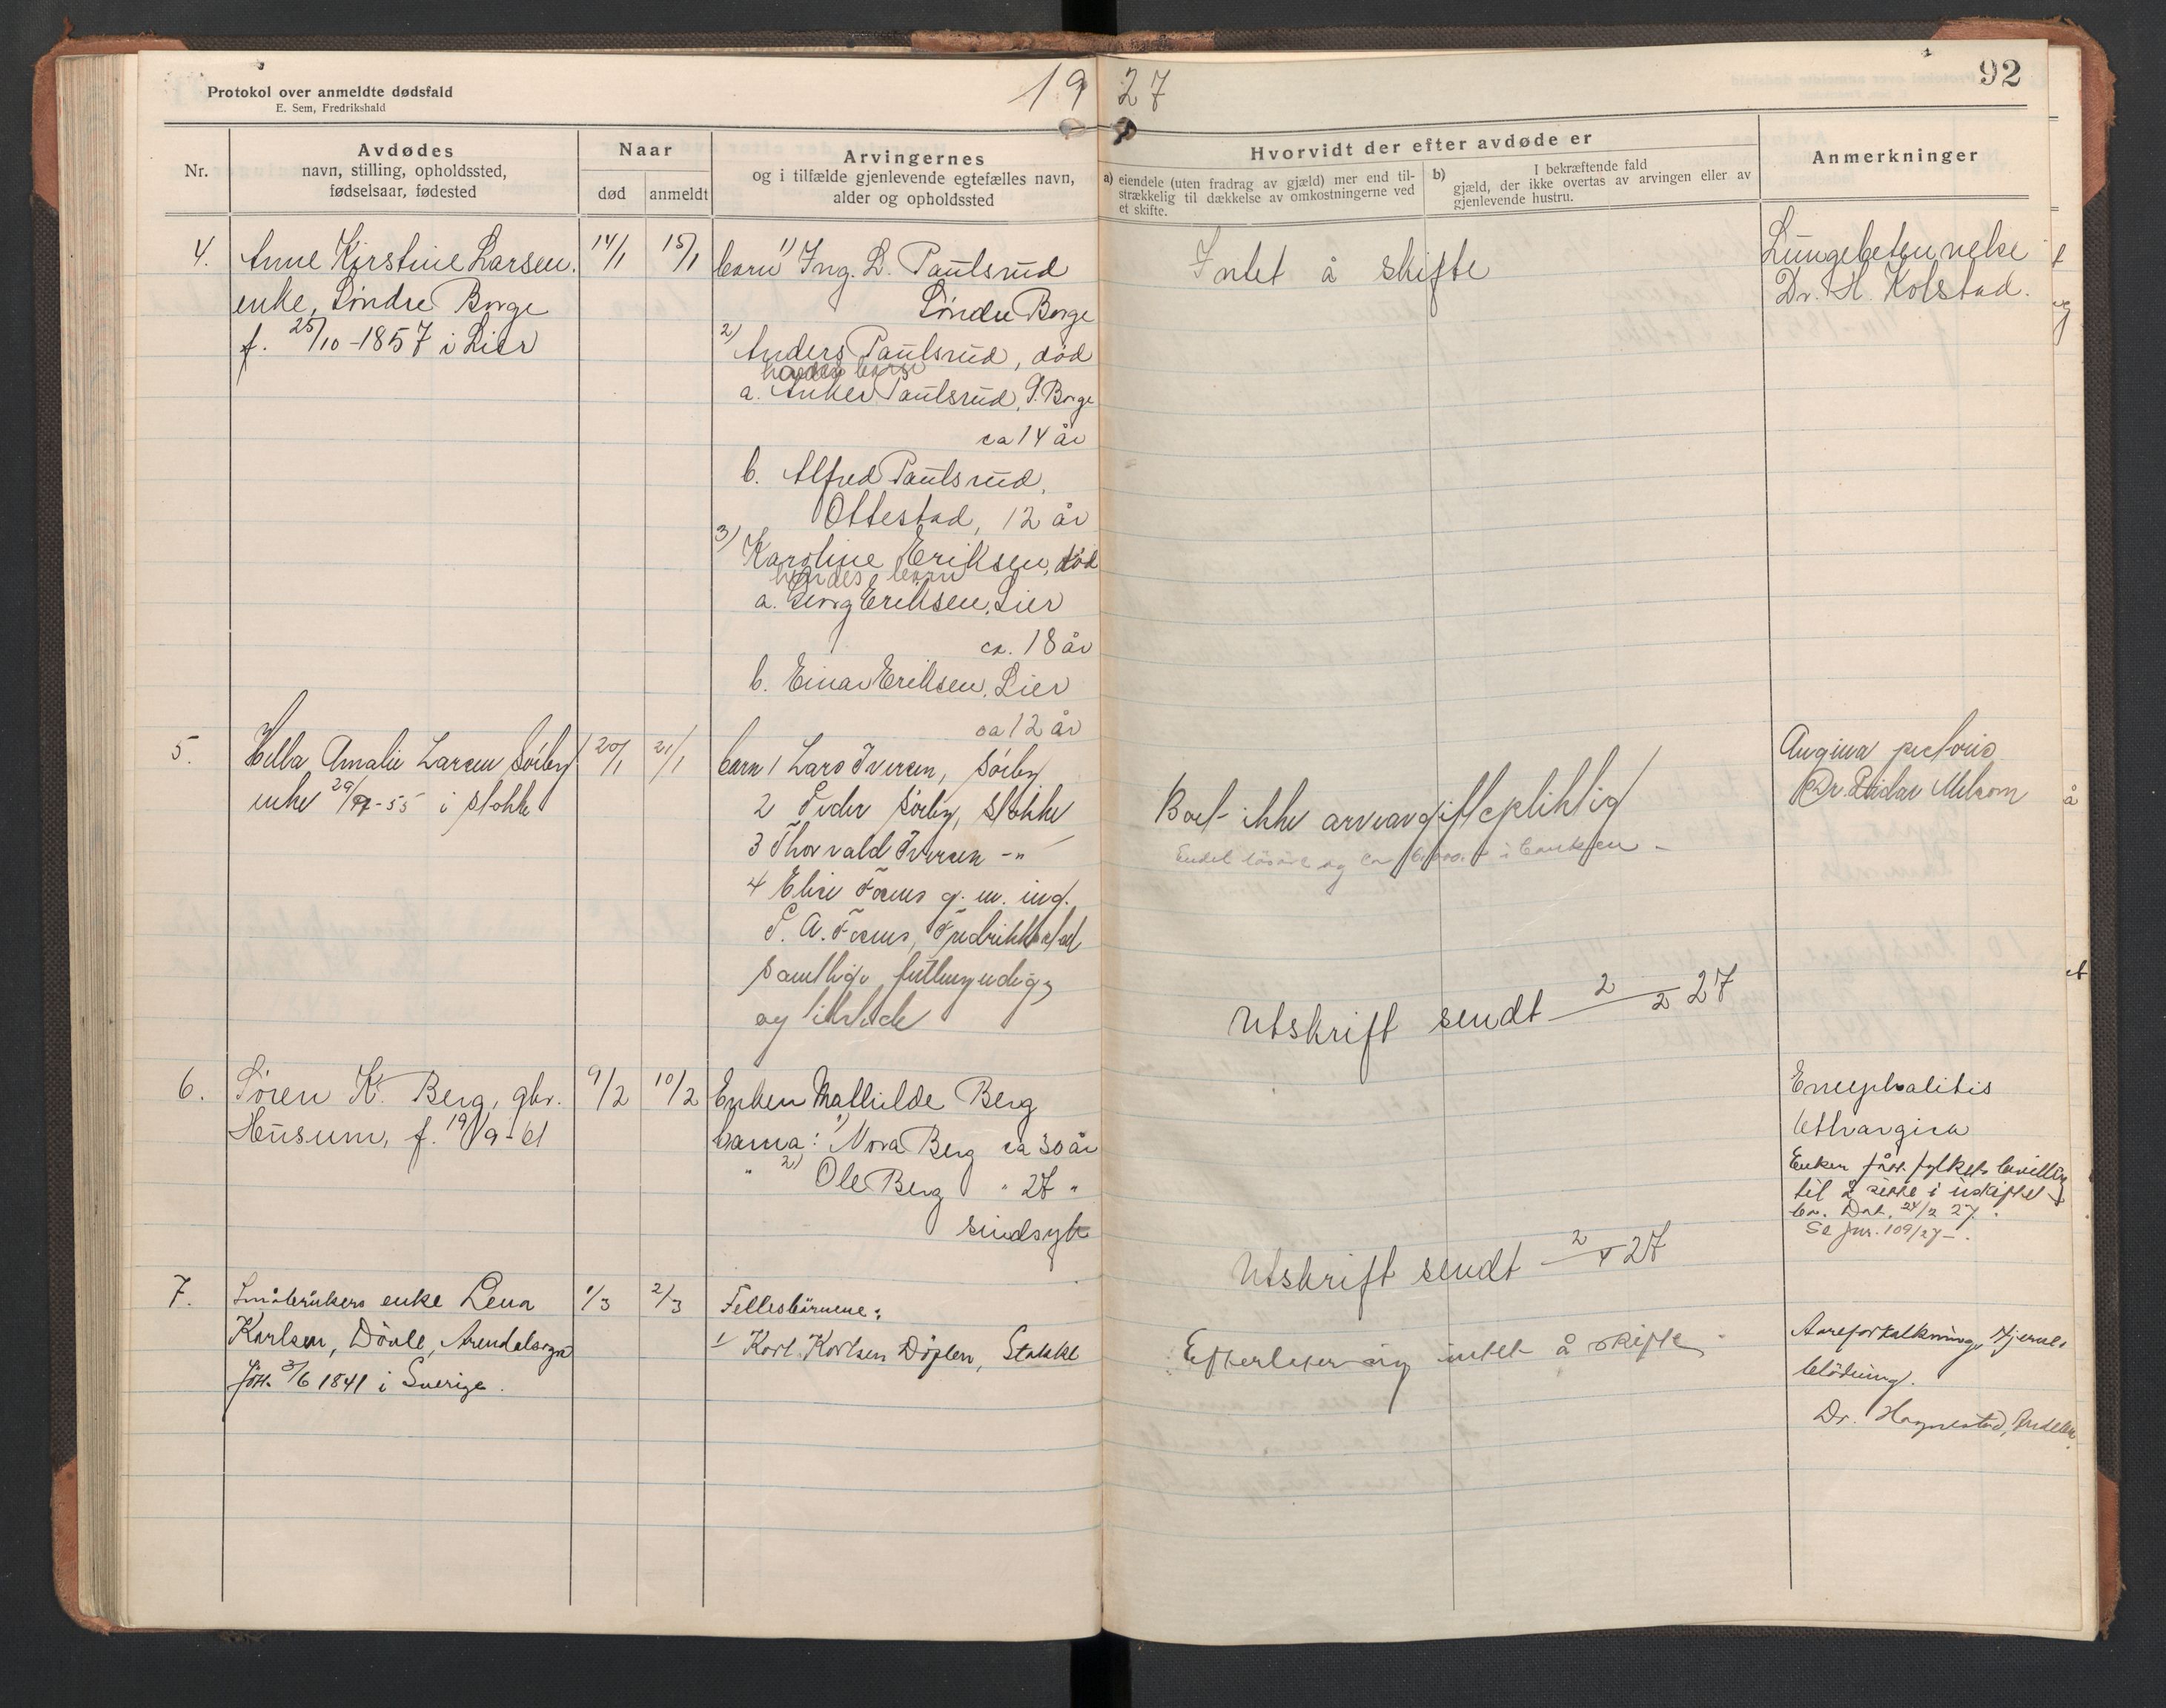 Protokol over anmeldte dødsfald
E. Sem, Fredrikshald
1927
92
Nr.
Avdødes
navn, stilling, opholdssted,
fødselsaar, fødested
Naar
død
anmeldt
Arvingernes
og i tilfælde gjenlevende egtefælles navn,
alder og opholdssted
Hvorvidt der efter avdøde er
a) eiendele (uten fradrag av gjæld) mer end til-
strækkelig til dækkelse av omkostningerne ved
et skifte.
b) I bekræftende fald
gjæld, der ikke overtas av arvingen eller av
gjenlevende hustru.
Anmerkninger
4.
Anne Kirstine Larsen.
enke, Søndre Borge
f. 25/10-1857 i Lier
14/1
15/1
barn 1) Ing. L. Paulsrud
Søndre Borge
2) Anders Paulsrud, død
a. Anker Paulsrud, S. Borge
ca 14 år
b. Alfred Paulsrud,
Ottestad, 12 år
3) Karoline Eriksen, død
hendes barn
a. Georg Eriksen, Lier
ca. 18 år
b. Einar Eriksen, Lier
ca 12 år
Intet å skifte
Lungebetennelse
Dr. H. Kolstad.
5.
Helba Amalie Larsen Sörby
enke 29/ -55 i Stokke
20/1
21/1
barn 1 Lars Iversen, Sörby
2 Peder Sörby, Stokke
3 Thorvald Iversen -"-
4 Elise Foens g. m. ing.
P. A. Foens, Fredrikkstad
Samtlige fuldmyndige
og tilstede
Boet ikke arveavgiftspliktig
Endel lösöre og ca i banken -
Utskrift sendt 2/2 27
Angina pectoris
Dr. Reidar Melsom
6.
Søren K. Berg, gbr.
Husum, f. 19/9-61
9/2
10/2
Enken Mathilde Berg
barna: 1) Nora Berg ca 30 år
" 2) Ole Berg " 27 "
sindsyk
Utskrift sendt 2/4 27
Encephalitis
lethargica
Enken fått fylkets bevilling
til å sitte i uskiftet
bo. Dat. 24/2 27.
Se jnr. 109/27.
7.
Småbrukers enke Lena
Karlsen, Dövle, Arendalsgt
født 3/6 1841 i Sverige.
1/3
2/3
Fellesbarnene:
1/ Karl Karlsen Döplen, Stokke
Efterlater sig intet å skifte.
Aareforkalkning, Hjerne-
blödning.
Dr. Hagnestad,